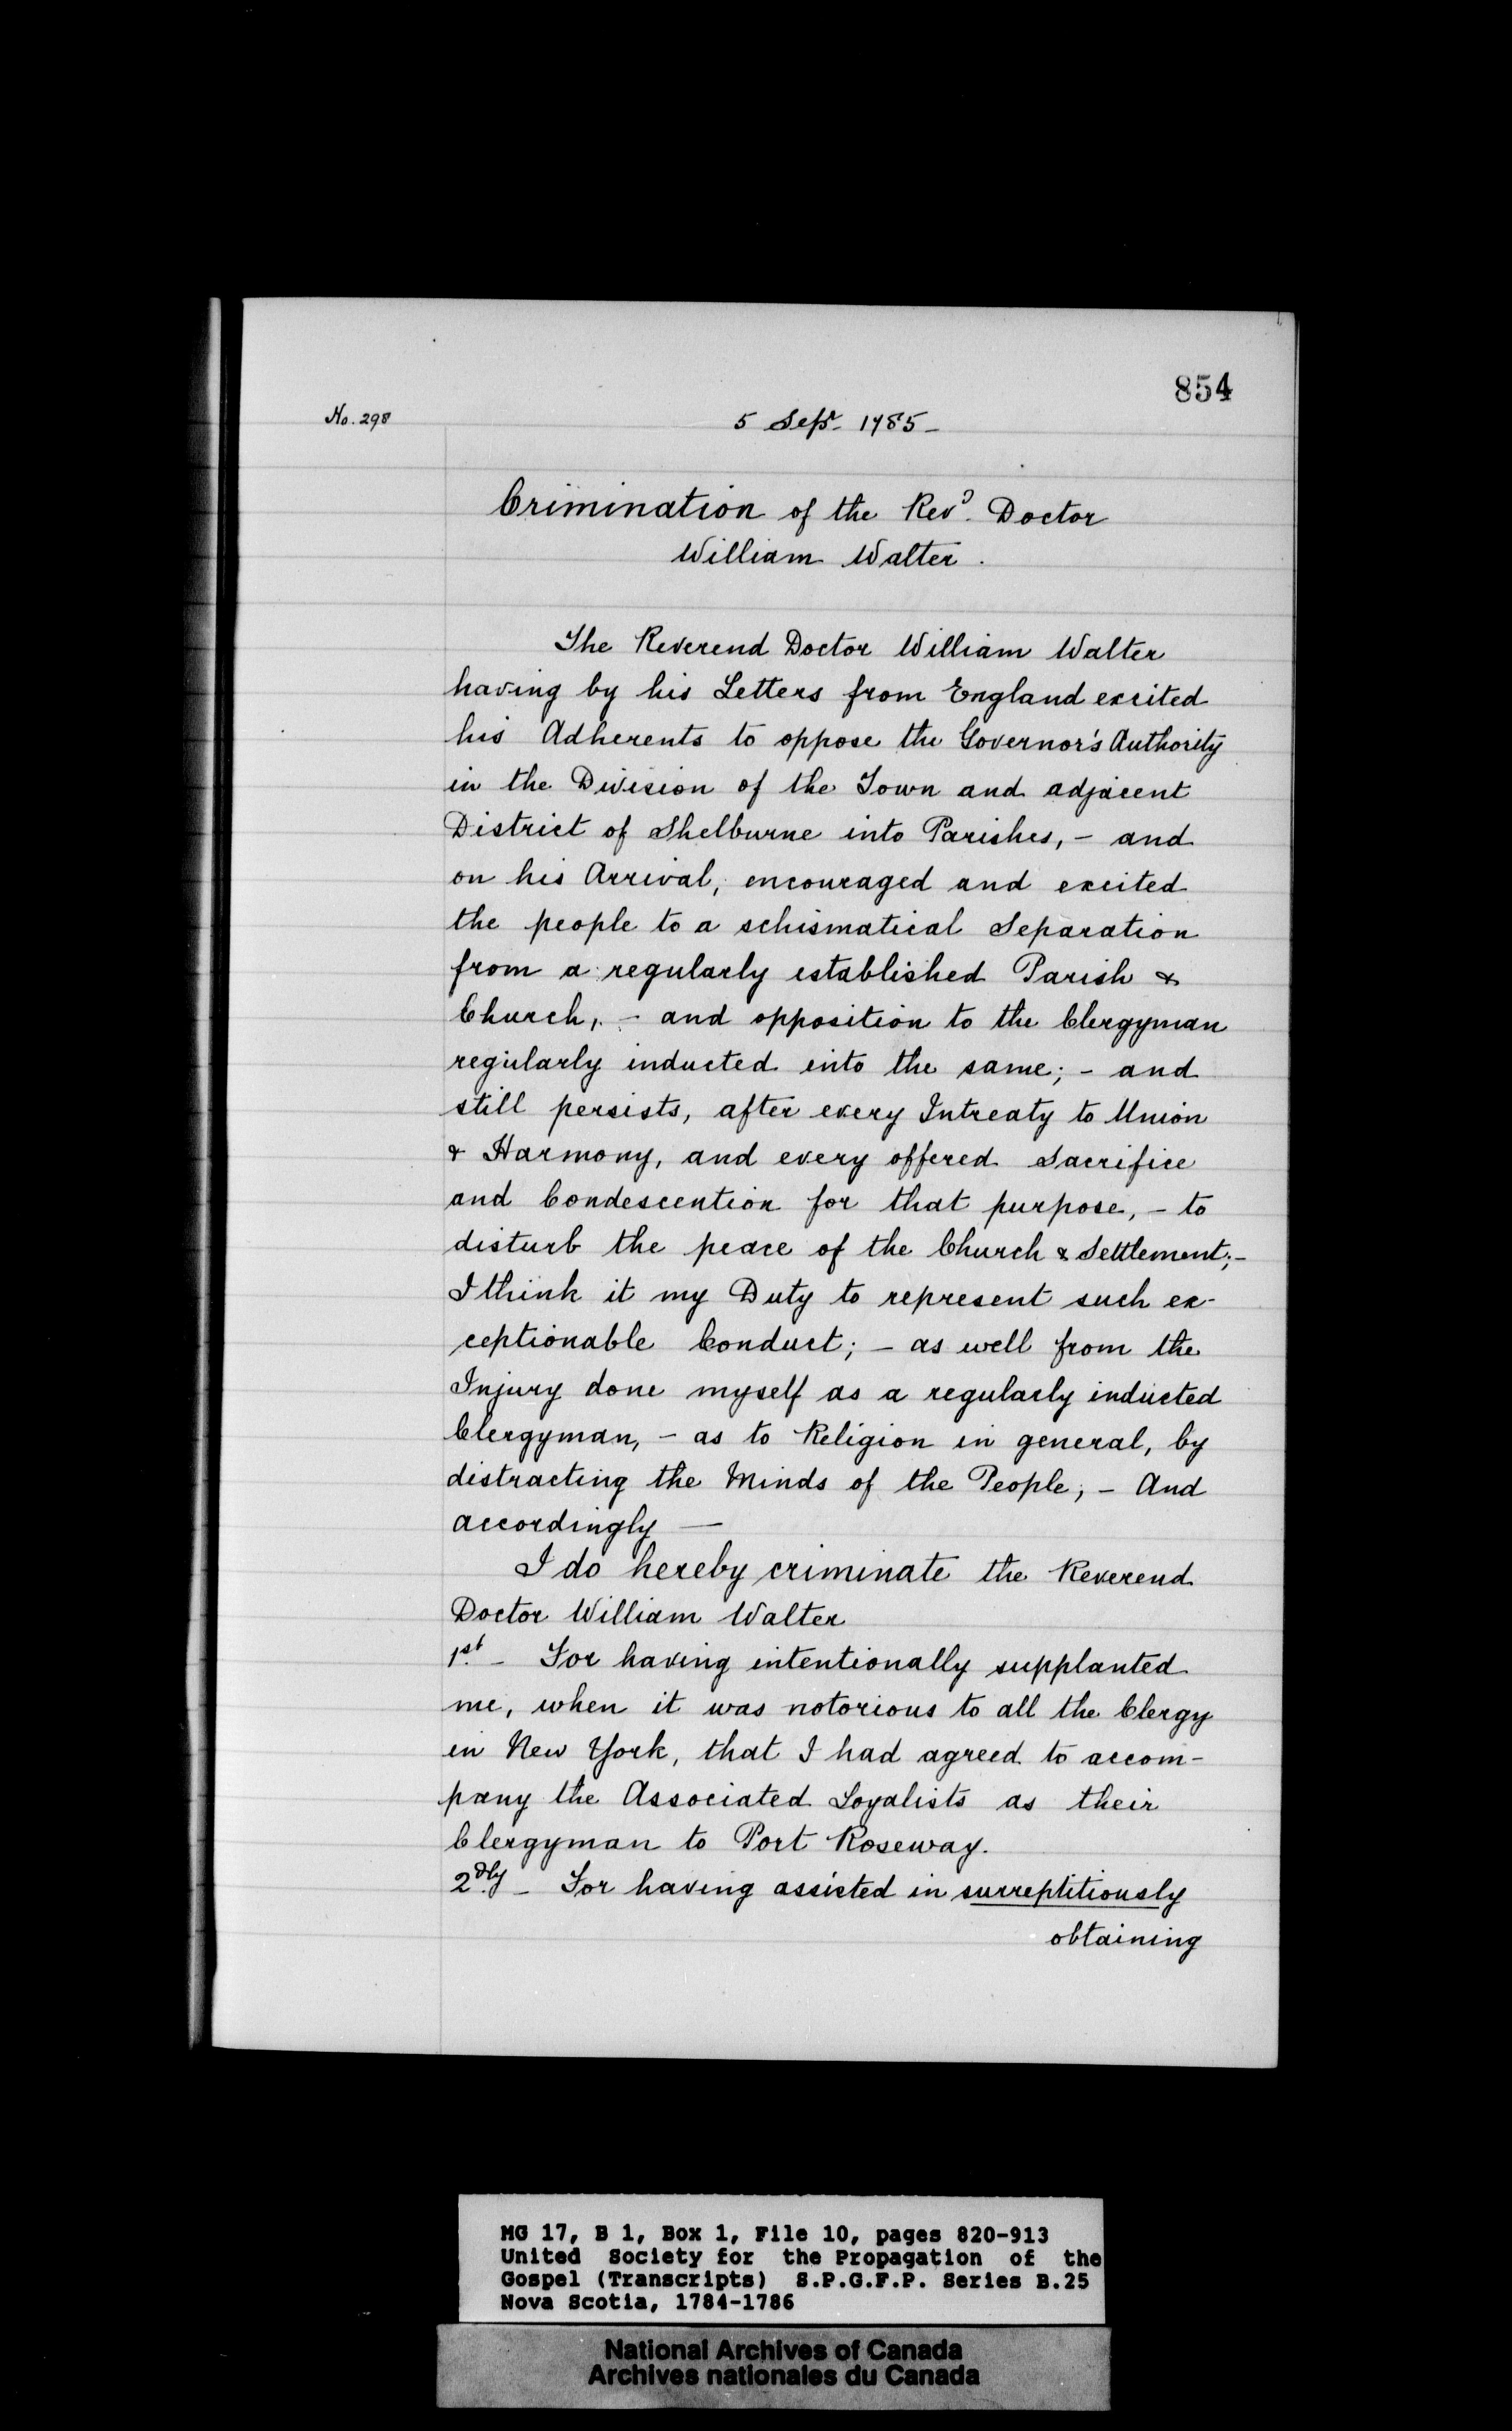 854
No. 298
5 Sepr. 1785 -
Crimination of the Revd. Doctor
William Walter.
The Reverend Doctor William Walter
having by his Letters from England excited
his Adherents to oppose the Governor's Authority
in the Division of the Town and adjacent
District of Shelburne into Parishes, - and
on his Arrival, encouraged and excited
the people to a schismatical Separation
from a regularly established Parish &
Church, - and opposition to the Clergyman
regularly inducted into the same; - and
still persists, after every Intreaty to Union
& Harmony, and every offered Sacrifice
and Condescention for that purpose, - to
disturb the peace of the Church & Settlement; -
I think it my Duty to represent such ex-
ceptionable Conduct; - as well from the
Injury done myself as a regularly inducted
Clergyman, - as to Religion in general, by
distracting the Minds of the People; - And
accordingly —
I do hereby criminate the Reverend
Doctor William Walter
1st. - For having intentionally supplanted
me, when it was notorious to all the Clergy
in New York, that I had agreed to accom-
pany the Associated Loyalists as their
Clergyman to Port Roseway.
2dly. - For having assisted in surreptitiously
obtaining
MG 17, B 1, Box 1, File 10, pages 820-913
United Society for the Propagation of the
Gospel (Transcripts) S.P.G.F.P. Series B.25
Nova Scotia, 1784-1786
National Archives of Canada
Archives nationales du Canada